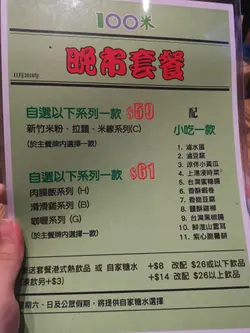 100米
11月2018年
晚市套餐
自選以下系列一款 $59 配
新竹米粉、拉麵、米線系列(C) 小吃一款
(於主餐牌内選擇一款)
1. 滷水蛋
2. 滷豆腐
3. 涼伴小黃瓜
4. 上湯浸時菜
5. 台灣蜜糖腸
6. 香酥蝦卷
7. 香脆豆腐
8. 鹽酥雞柳
9. 台灣黑椒腸
10. 鮮淮山雲耳
11. 紫心脆薯餅
自選以下系列一款 $61
肉臊飯系列 (H)
滑滑蛋系列 (B)
咖喱系列 (G)
(於主餐牌内選擇一款)
送套餐港式熱飲品 或 自家糖水 +$8 改配 $26或以下飲品
飲另加+$3) +$14 改配 $26以上飲品
期六、日及公眾假期，將提供自家糖水選擇